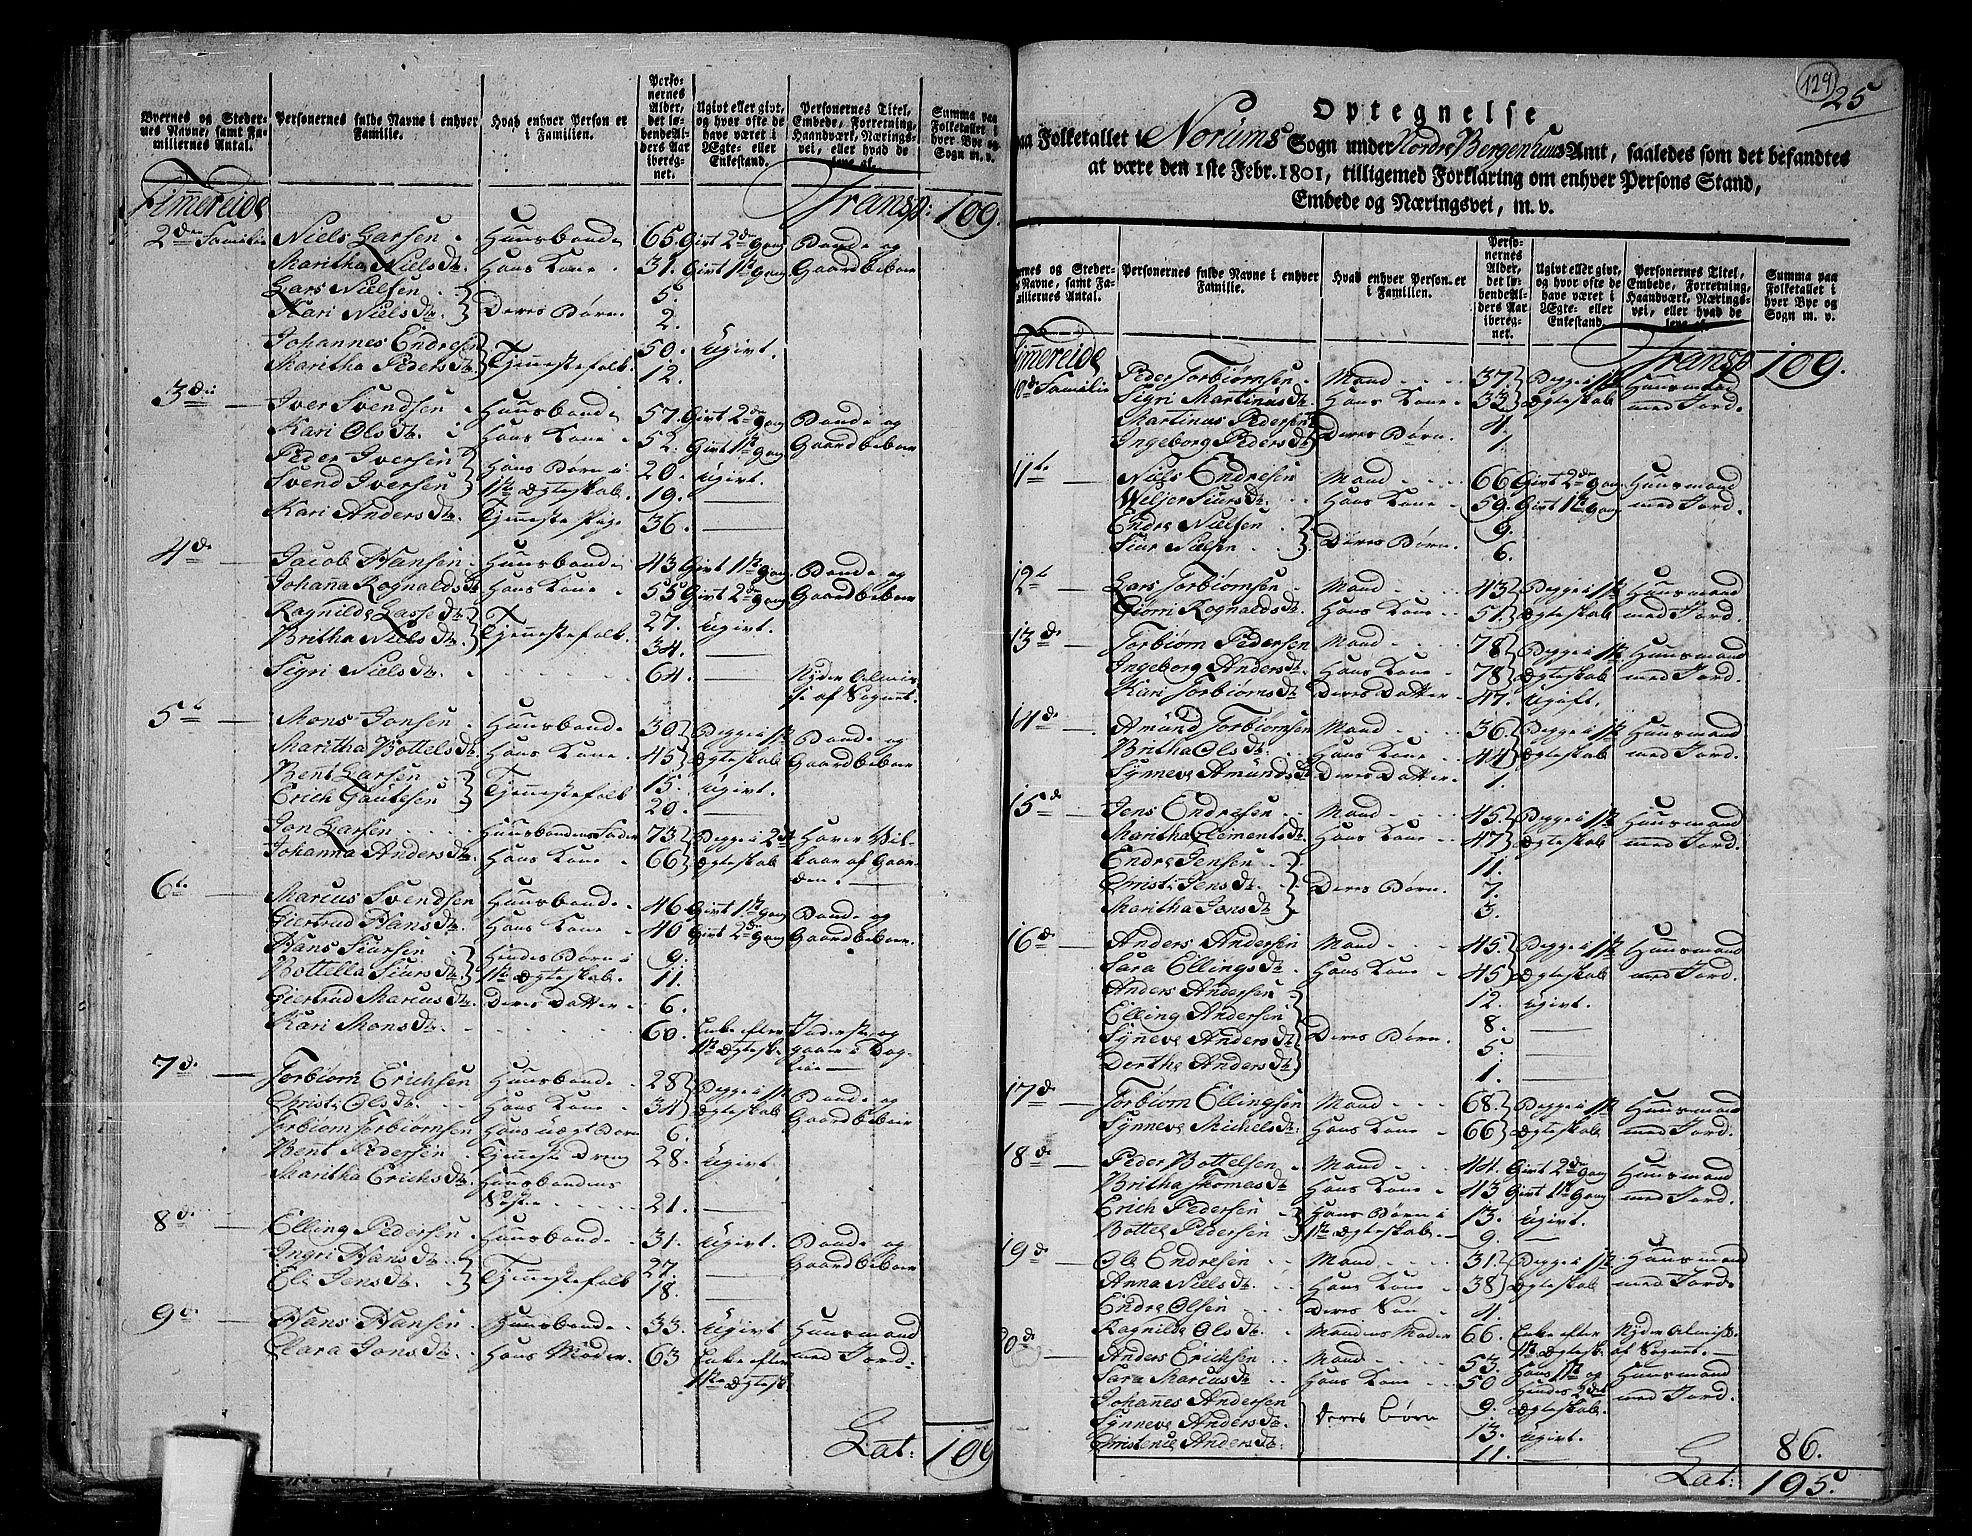 Byernes og Stedernes Navne, samt Familiernes Antal.
Personernes fulde Navne i enhver Familie.
Hvad enhver Person er i Familien.
Personernes Alder, det løbende Alders Aar iberegnet.
Ugivt eller givt, og hvor ofte de have været i Ægte- eller Enkestand.
Personernes Titel, Embede, Forretning, Haandværk, Næringsvei, eller hvad de leve af.
Summa paa Folketallet i hver Bye og Sogn m. v.
Timereide Transp: 109.
2den Familie Niels Larsen Huusbonde 65. Givt 2den gang Bonde og
Maritha Nielsdtr. Hans Kone 31. Givt 1te gang Gaardbeboer
Lars Nielsen 5.
Kari Nielsdtr. } Deres Børn. 2.
Johannes Endresen 50. Ugivt.
Maritha Pedersdtr. } Tjenestefolk. 12.
3die Iver Svendsen Huusbonde 57. Givt 2de gang Bonde og
Kari Olsdtr. Hans Kone 52. Givt 1te gang Gaardbeboer
Peder Iversen Hans Børn i 20. Ugivt.
Svend Iversen } 1te Ægteskab. 19. —
Kari Andersdtr. Tjeneste Pige 36. —
4de Jacob Hansen Huusbonde 43 Givt 1te gang Bonde og
Johana Rognaldsdtr. Hans Kone 55 Givt 2de gang Gaardbeboer
Ragnilde Lassedtr. 27. Ugivt.
Britha Nielsdtr. } Tjenestefolk. 34. —
Sigri Nielsdtr. 64. — Nyder Almis-
se af Sognet.
5te Mons Jonsen Huusbonde 30 Begge i 1te Bonde og
Maritha Bottelsdtr. Hans Kone 45 } Ægteskab Gaardbeboer
Bent Larsen 15. Ugivt.
Erich Gautesen } Tjenestefolk 20. —
Jon Larsen Huusbondens Fader 73 Begge i 2det Haver Vil-
Johanna Andersdtr. Hans Kone 66 } Ægteskab kaar af Gaar-
den. —
6te Marcus Svendsen Huusbonde 46 Givt 1te gang Bonde og
Giertrud Hansdtr. Hans Kone 40 Givt 2den gang Gaardbeboer.
Hans Siursen Hendes Børn i 9.
Bottella Siursdtr. } 1te Ægteskab. 11.
Giertrud Marcusdtr. Deres Datter 6.
Kari Monsdtr. 60. Enke efter
1te Ægtesk.
7de Torbiørn Erichsen Huusbonde 28 Begge i 1te Bonde og
Christi Olsdtr. Hans Kone 31 } Ægteskab Gaardbeboer
Torbiørn Torbiørnsen Hans uægt Børn 6.
Bent Pedersen Tjeneste Dreng 28. Ugivt.
Maritha Erichsdtr. Huusbondens
Søster 21. —
8de Elling Pedersen Huusbonde 31. Ugivt. Bonde og
Ingri Hansdtr. 27. — Gaardbeboer
Eli Jensdtr. } Tjenestefolk 18. —
9de Hans Hansen Huusbonde 33. Ugivt Huusmand
Clara Jonsdtr. Hans Moder 63 Enke efter med Jord.
1te Ægtesk.
Lat: 109
129
25
Optegnelse
paa Folketallet i Norums Sogn under Nordre Bergenhuus Amt, saaledes som det befandtes
at være den 1ste Febr. 1801, tilligemed Forklaring om enhver Persons Stand,
Embede og Næringsvei, m. v.
Personernes fulde Navne i enhver Familie.
Hvad enhver Person er i Familien.
Personernes Alder, det løbende Alders Aar iberegnet.
Ugivt eller givt, og hvor ofte de have været i Ægte- eller Enkestand.
Personernes Titel, Embede, Forretning, Haandværk, Næringsvei, eller hvad de leve af.
Summa paa Folketallet i hver Bye og Sogn m. v.
Timereide Transp 109.
10de Familie Peder Torbiørnsen Mand 37. Begge i 1te Huusmand
Sigri Martinusdtr. Hans Kone 33 } Ægteskab med Jord.
Martinus Pedersen 4.
Ingeborg Pedersdtr. } Deres Børn. 1.
11te Niels Endresen Mand 66 Givt 2den gang Huusmand
Weljer Siursdtr. Hans Kone 59. Givt 1te gang med Jord.
Endre Nielsen 9.
Siur Nielsen } Deres Børn. 6.
12te Lars Torbiørnsen Mand 43 Begge i 1te Huusmand
Rognaldsdtr. Hans Kone 51. } Ægteskab med Jord.
13de Torbiørn Pedersen Mand 78 Begge i 1te Huusmand
Ingeborg Andersdtr. Hans Kone 78 } Ægteskab med Jord.
Kari Torbiørnsdtr. Deres Datter 47. Ugift.
14de Amund Torbiørnsen Mand 36. Begge i 1te Huusmand
Britha Olsdtr. Hans Kone 44 } Ægteskab med Jord.
Synneve Amundsdtr. Deres Datter 1.
15de Jens Endresen Mand 45. Begge i 1te Huusmand
Maritha Clementsdtr. Hans Kone 47 } Ægteskab med Jord.
Endre Jensen 11.
Christi Jensdtr. } Deres Børn. 7.
Maritha Jensdtr. 3.
16de Anders Andersen Mand 45. Begge i 1te Huusmand
Sara Ellingsdtr. Hans Kone 45 } Ægteskab med Jord.
Anders Andersen 12. Ugivt.
Elling Andersen 8. —
Synneve Andersdtr. } Deres Børn. 5. —
Dorthe Andersdtr. 1. —
17de Torbiørn Ellingsen Mand 68. Begge i 1te Huusmand
Synneve Michelsdtr. Hans Kone 66 } Ægteskab med Jord.
18de Peder Bottelsen Mand 44. Givt 2den gang Huusmand
Britha Thomasdtr. Hans Kone 43 Givt 1te gang med Jord.
Erich Pedersen Hans Børn i 13. Ugivt.
Bottel Pedersen } 1te Ægteskab. 9. —
19de Ole Endresen Mand 31. Begge i 1te Huusmand
Anna Nielsdtr. Hans Kone 38 } Ægteskab med Jord
Endre Olsen Deres Søn 4.
Ragnilde Olsdtr. Mandens Moder 66. Enke efter Nyder Almisse
1te Ægtesk. af Sognet. —
20de Anders Erichsen Mand 53. Hans 1te og Huusmand
Sara Marcusdtr. Hans Kone 50 Hendes 2det med Jord.
Johannes Andersen 9. Ægteskab.
Synneve Andersdtr. } Deres Børn 13. Ugivt.
Christense Andersdtr. 11. —
86.
Lat: 195.